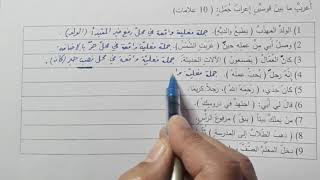 أعرب ما بين قوسين إعراب جمل: ( 10 علامات)
1) الولدُ المهذبُ ( يطيعُ والديْهِ). جملة فعلية واقعة في محل رفع خبر المبتدأ (الولد)
2) وصل أبي من عمله حينَ ( غربتِ الشَّمْسُ). جملة فعلية واقعة في محل جرّ بالإضافة
3) كانَ العمّالُ ( يصنعونَ ) الآلاتِ الحديثةَ. جملة فعلية واقعة في محل نصب خبر (كان).
4) إنّه رجلٌ ( يُحبّ عمله ). جملة فعلية وا
5) كانَ جدي، ( رحمهُ اللهُ)، رجلًا كريمًا.
6) قال لي أبي: ( اجتهدْ في دروسِك ).
7) من يملكْ بيتًا ( يبقَ ) مرفوعَ الرأسِ.
8) ذهبَ الطلابُ إلى المدرسةِ
9) دخلَ المعلمُ الصفَّ